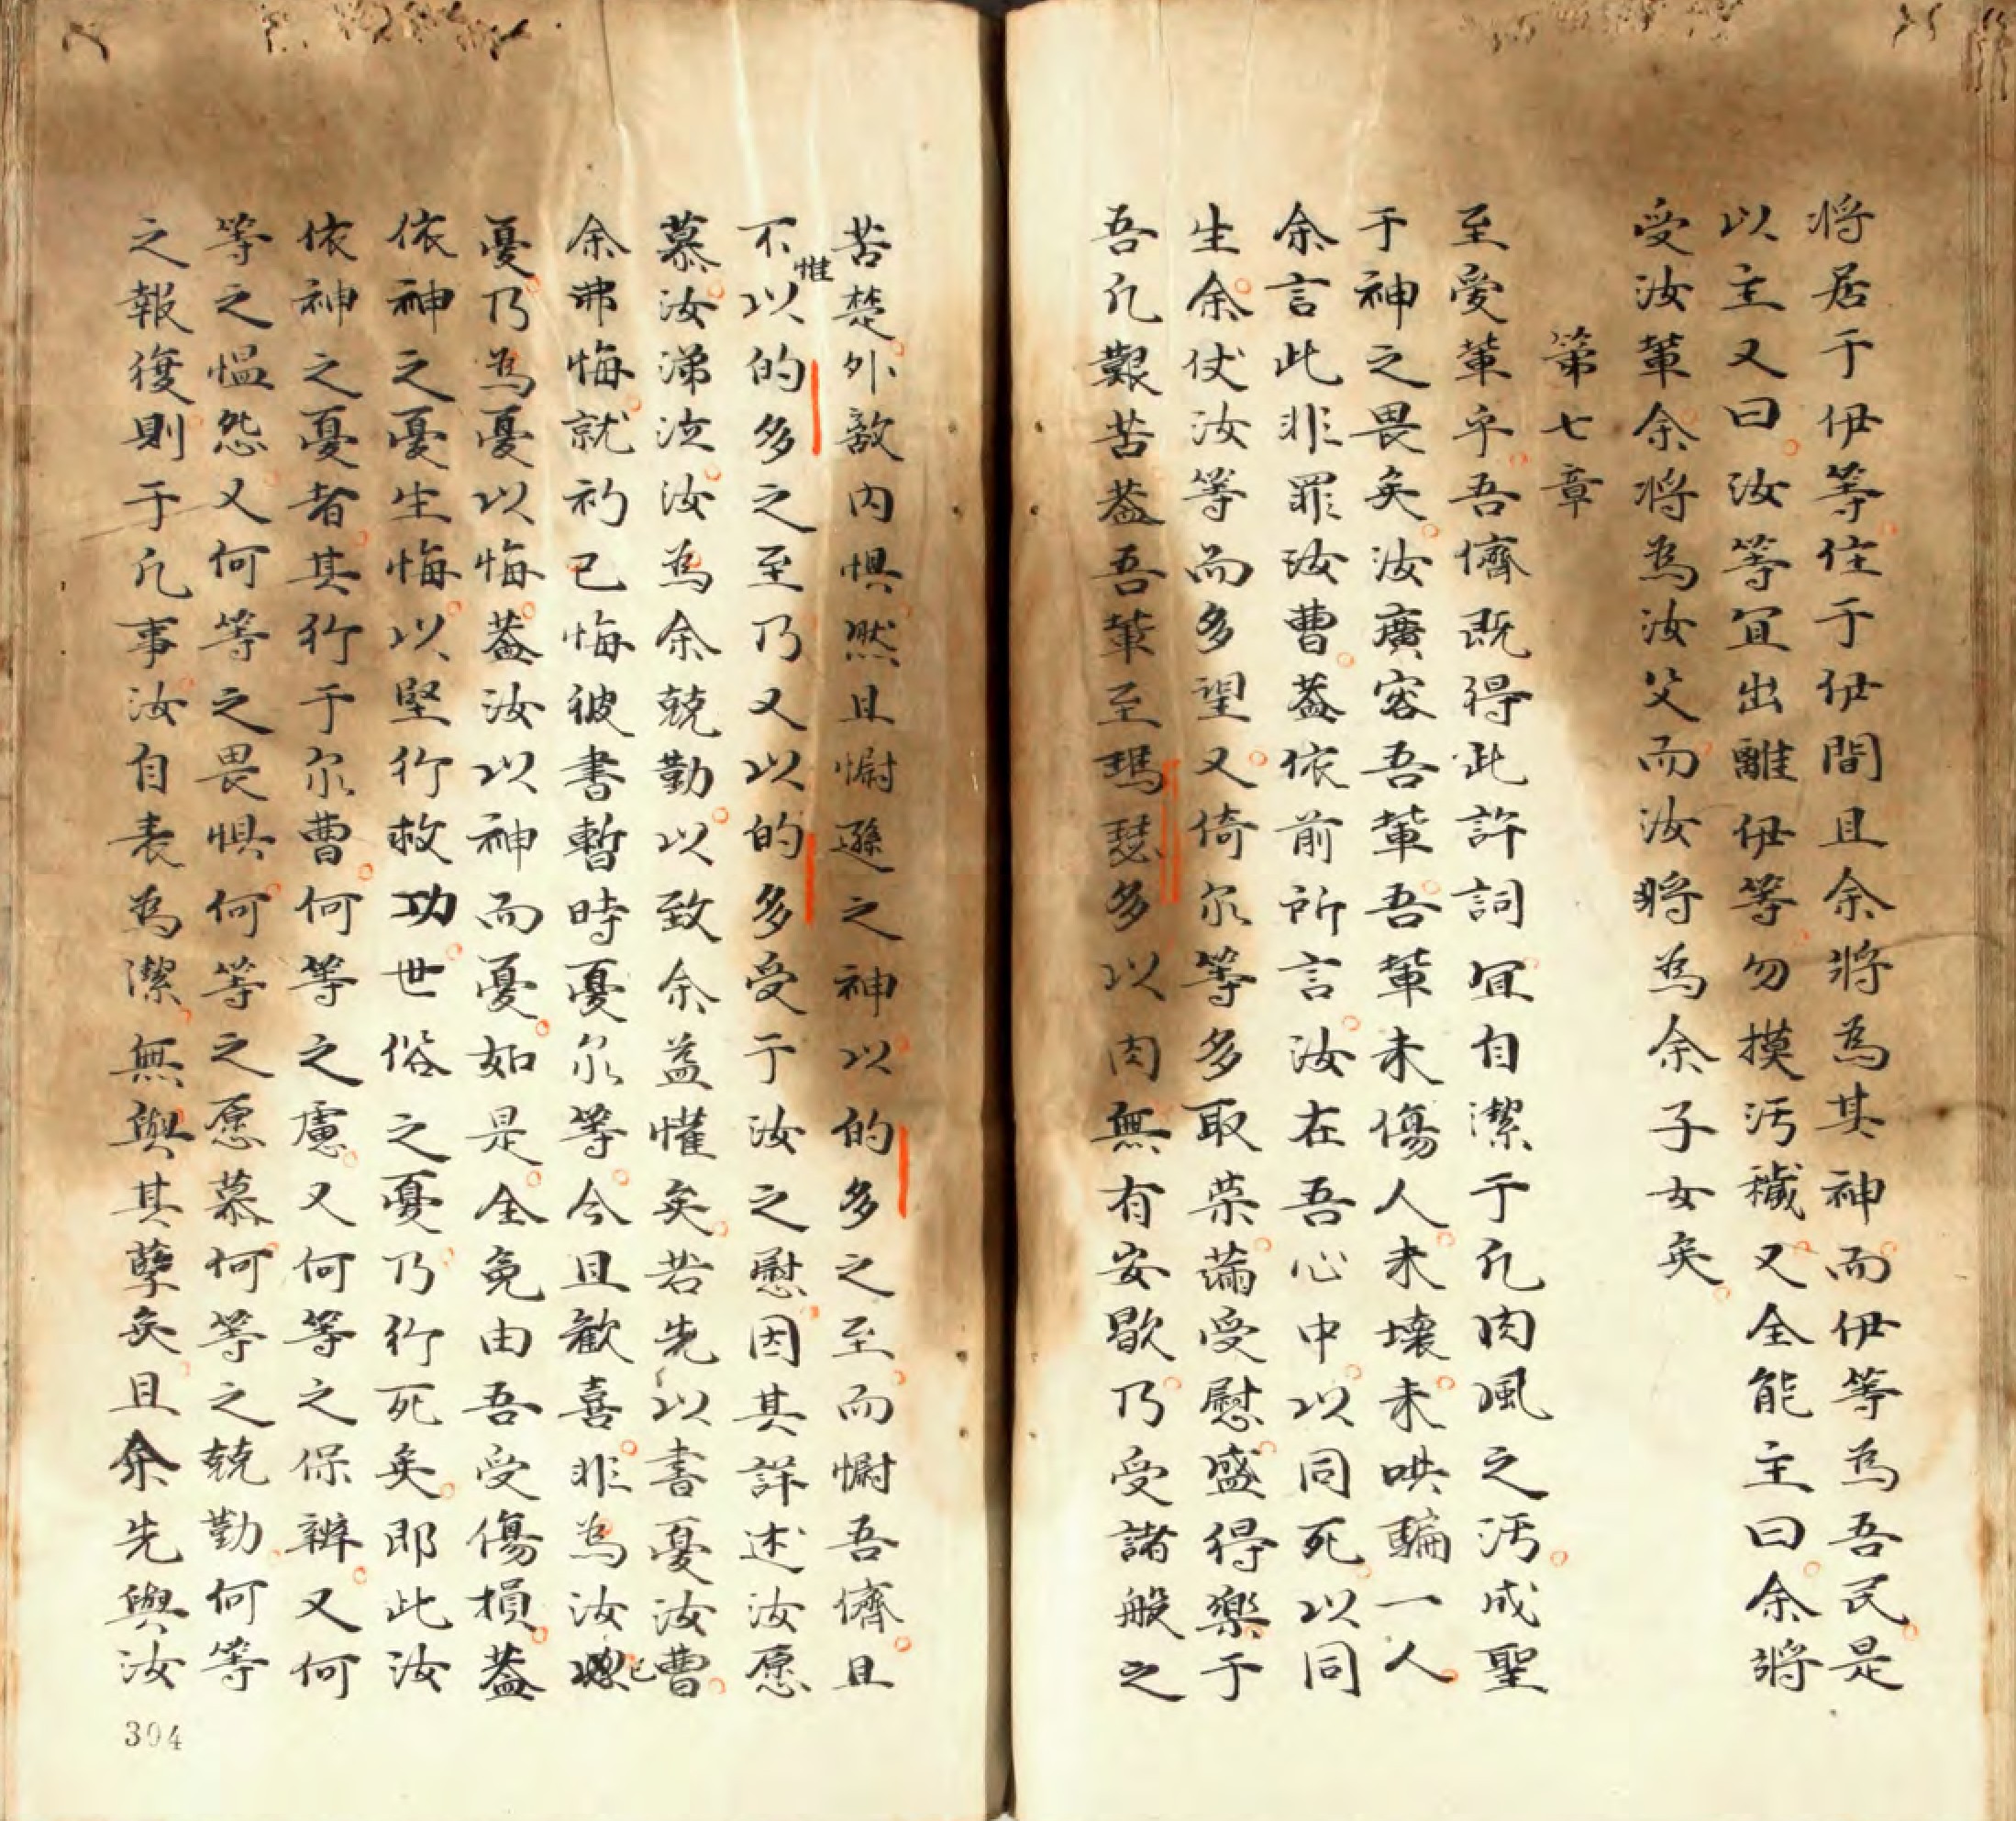 将居于伊等住于伊間且余将為其神而伊等為吾民是
以主又曰汝等宜出離伊等勿摸汚穢又全能主曰余将
受汝軰余将為汝父而汝将為余子女矣
第七章
至愛軰乎吾儕既得此許詞宜自潔于凡肉風之汚成聖
于神之畏矣汝廣容吾軰吾軰未傷人未壞未哄騙一人
余言此非罪汝曹葢依前所言汝在吾心中以同死以同
生余仗汝等而多望又倚尔等多取荣滿受慰盛得樂于
吾凡艱苦葢吾軰至瑪瑟多以肉無有安歇乃受諸般之
苦楚外敵内惧然且慰遜之神以的多之至而慰吾儕且
不惟以的多之至乃又以的多受于汝之慰因其詳述汝愿
慕汝涕泣汝為余兢勤以致余益懽矣若先以書憂汝曹
余弗悔就初已悔彼書暫時憂尔等今且歡喜非為汝已
憂乃為憂以悔葢汝以神而憂如是全免由吾受傷損葢
依神之憂生悔以堅行救功世俗之憂乃行死矣即此汝
依神之憂者其行于尔曹何等之慮又何等之保辨又何
等之愠怨又何等之畏惧何等之愿慕何等之兢勤何等
之報復則于凡事汝自表為潔無與其孽矣且余先與汝
304